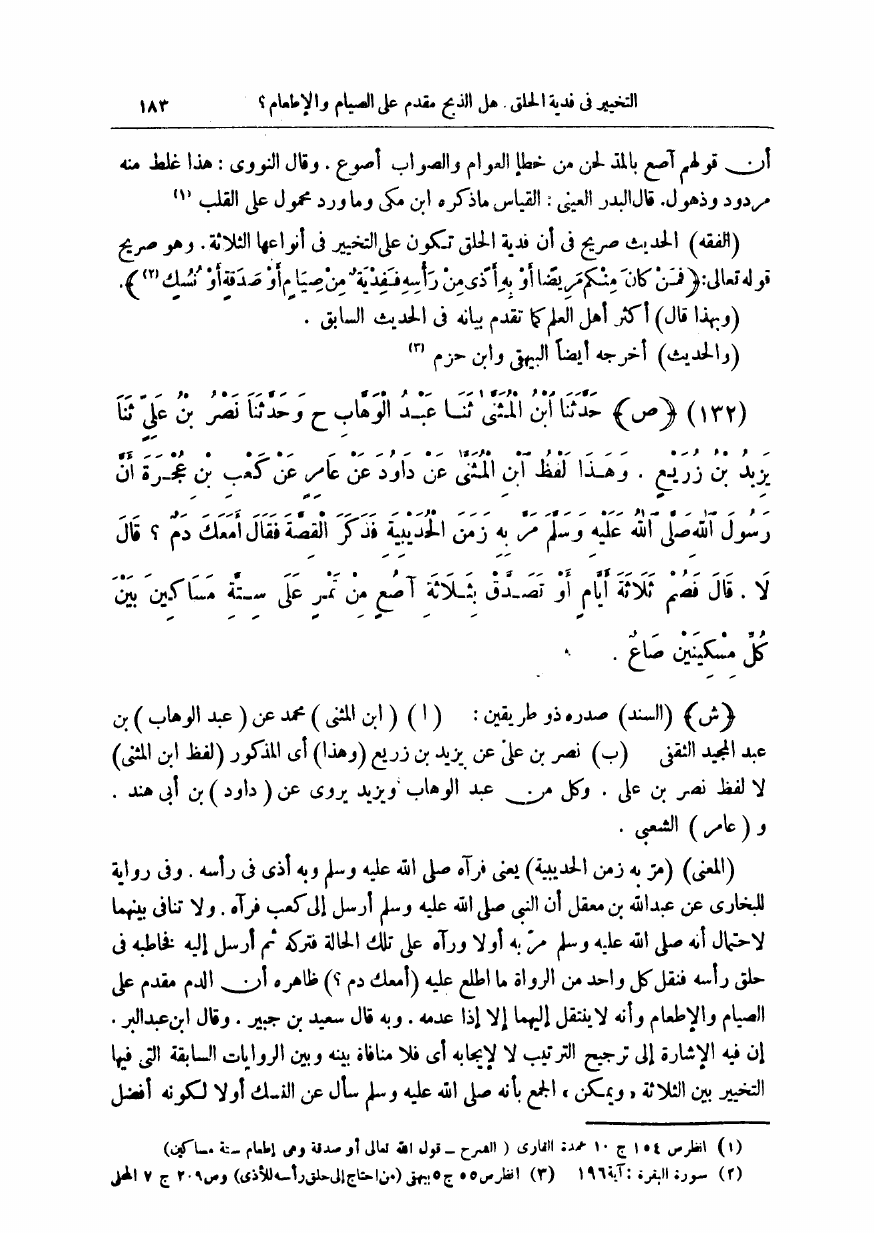 التخيير فى فدية الحلق . هل الذبح مقدم على الصيام والإطعام ؟ ١٨٣
أن قولهم آصع بالمد لحن من خطإ العوام والصواب أصوع . وقال النووى : هذا غلط منه
مردود وذهول. قال البدر العينى : القياس ماذكره ابن مكى وما ورد محمول على القلب (١)
(الفقه) الحديث صريح فى أن فدية الحلق تكون على التخيير فى أنواعها الثلاثة . وهو صريح
قوله تعالى: ﴿فَمَنْ كَانَ مِنْكُم مَرِيضًا أَوْ بِهِ أَذًى مِنْ رَأْسِهِ فَفِدْيَةٌ مِنْ صِيَامٍ أَوْ صَدَقَةٍ أَوْ نُسُكٍ (٢)﴾.
(وبهذا قال) أكثر أهل العلم كما تقدم بيانه فى الحديث السابق .
(والحديث) أخرجه أيضاً البيهقى وابن حزم (٣)
(١٣٢) ﴿ص﴾ حَدَّثَنَا ابْنُ الْمُثَنَّى ثَنَا عَبْدُ الْوَهَّابِ ح وَحَدَّثَنَا نَصْرُ بْنُ عَلِيٍّ ثَنَا
يَزِيدُ بْنُ زُرَيْعٍ . وَهَذَا لَفْظُ ابْنِ الْمُثَنَّى عَنْ دَاوُدَ عَنْ عَامِرٍ عَنْ كَعْبِ بْنِ عُجْرَةَ أَنَّ
رَسُولَ اللهِ صَلَّى اللهُ عَلَيْهِ وَسَلَّمَ مَرَّ بِهِ زَمَنَ الْحُدَيْبِيَةِ فَذَكَرَ الْقِصَّةَ فَقَالَ أَمَعَكَ دَمٌ ؟ قَالَ
لَا . قَالَ فَصُمْ ثَلَاثَةَ أَيَّامٍ أَوْ تَصَدَّقْ بِثَلَاثَةِ آصُعٍ مِنْ تَمْرٍ عَلَى سِتَّةِ مَسَاكِينَ بَيْنَ
كُلِّ مِسْكِينَيْنِ صَاعٌ .
﴿ش﴾ (السند) صدره ذو طريقين : (١) (ابن المثنى) محمد عن (عبد الوهاب) بن
عبد المجيد الثقفى (ب) نصر بن على عن يزيد بن زريع (وهذا) أى المذكور (لفظ ابن المثنى)
لا لفظ نصر بن على . وكل من عبد الوهاب ويزيد يروى عن (داود) بن أبى هند .
و (عامر) الشعبى .
(المعنى) (مرّ به زمن الحديبية) يعنى فرآه صلى الله عليه وسلم وبه أذى فى رأسه . وفى رواية
للبخارى عن عبدالله بن معقل أن النبي صلى الله عليه وسلم أرسل إلى كعب فرآه . ولا تنافى بينهما
لاحتمال أنه صلى الله عليه وسلم مرّ به أولا ورآه على تلك الحالة فتركه ثم أرسل إليه فخاطبه فى
حلق رأسه فنقل كل واحد من الرواة ما اطلع عليه (أمعك دم ؟) ظاهره أن الدم مقدم على
الصيام والإطعام وأنه لاينتقل إليهما إلا إذا عدمه . وبه قال سعيد بن جبير . وقال ابن عبدالبر .
إن فيه الإشارة إلى ترجيح الترتيب لا لإيجابه أى فلا منافاة بينه وبين الروايات السابقة التى فيها
التخيير بين الثلاثة ، ويمكن ، الجمع بأنه صلى الله عليه وسلم سأل عن النسك أولا لكونه أفضل
(١) انظر ص ١٥٤ ج ١٠ عمدة القارى ( الشرح – قول الله تعالى أو صدقة وهى إطعام ستة مساكين)
(٢) سورة البقرة : آية ١٩٦ (٣) انظر ص ٥٥ ج ٥ بيهقى (من احتاج إلى حلق رأسه للأذى) وص ٢٠٩ ج ٧ المحلى